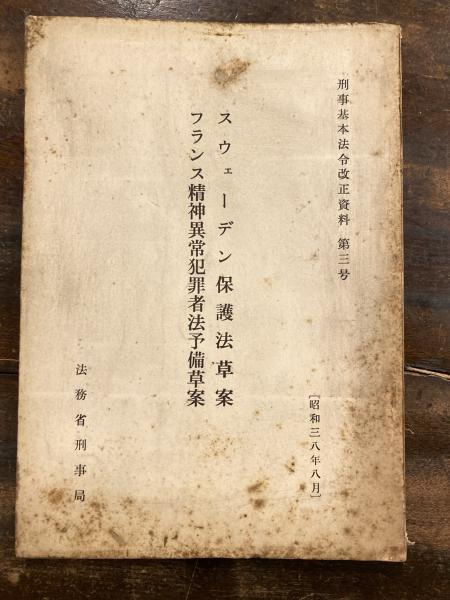 刑事基本法令改正資料 第三号
[昭和三八年八月]
スウェーデン保護法草案
フランス精神異常犯罪者法予備草案
法務省刑事局